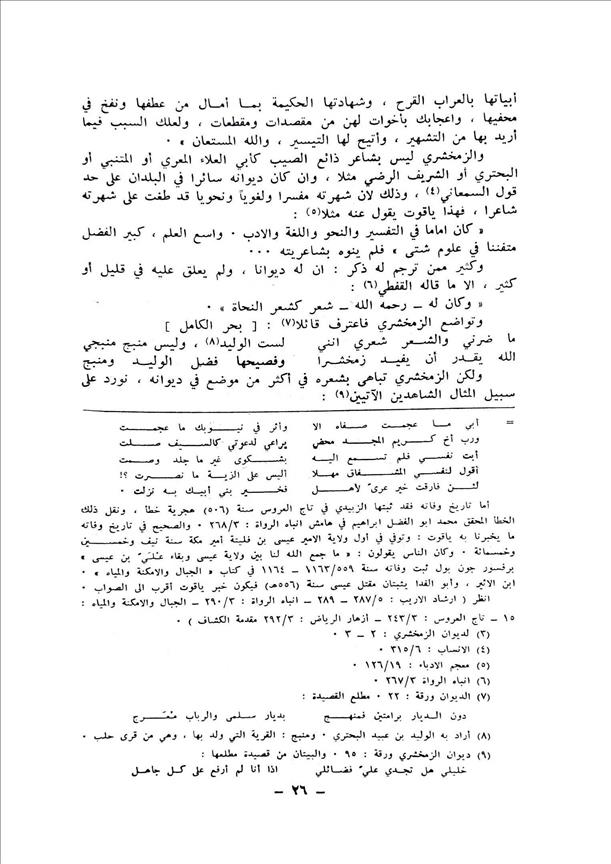 أبياتها بالعراب القرح ، وشهادتها الحكيمة بمـا أمال من عطفها ونفخ في
محفيها ، واعجابك بأخوات لهن من مقصدات ومقطعات ، ولعلك السبب فيما
أريد بها من التشهير ، وأتيح لها التيسير ، والله المستعان » ٠
والزمخشري ليس بشاعر ذائع الصيب كأبي العلاء المعري أو المتنبي أو
البحتري أو الشريف الرضي مثلا ، وان كان ديوانه سائرا في البلدان على حد
قول السمعاني(٤) ، وذلك لأن شهرته مفسرا ولغوياً ونحويا قد طغت على شهرته
شاعرا ، فهذا ياقوت يقول عنه مثلا(٥) :
« كان اماما في التفسير والنحو واللغة والادب ٠ واسع العلم ، كبير الفضل
متفننا في علوم شتى » فلم ينوه بشاعريته ٠٠٠
وكثير ممن ترجم له ذكر : ان له ديوانا ، ولم يعلق عليه في قليل أو
كثير ، الا ما قاله القفطي(٦) :
« وكان له ــ رحمه الله ــ شعر كشعر النحاة » ٠
وتواضع الزمخشري فاعترف قائلا(٧) : [ بحر الكامل ]
ما ضرني والشـعر شعري انني لست الوليد(٨) ، وليس منبج منبجي
الله يقـدر أن يفيـد زمخشـرا وفصيحها فضل الوليـد ومنبج
ولكن الزمخشري تباهى بشعره في أكثر من موضع في ديوانه ، نورد على
سبيل المثال الشاهدين الآتيين(٩) :
= أبي مـا عجمـت صـفاه الا وأثر في نيـوبك ما عجمـت
ورب أخ كـريم المجـد محض يراعي لدعوتي كالسـيف صـلت
أيت نفسـي فلم تسـمع اليـه بشـكوى غير ما جلد وصـمت
أقول لنفسـي المشـفاق مهـلا أليس على الرزية ما نصـرت ؟!
لئـن فارقت خير عرى لأهـل فخـير بني أبيـك به نزلت ٠
أما تاريخ وفاته فقد ثبتها الزبيدي في تاج العروس سنة (٥٠٦) هجرية خطأ ، ونقل ذلك
الخطأ المحقق محمد ابو الفضل ابراهيم في هامش انباه الرواة : ٢٦٨/٣ ٠ والصحيح في تاريخ وفاته
ما يخبرنا به ياقوت : وتوفي في أول ولاية الامير عيسى بن فليتة أمير مكة سنة نيف وخمسـين
وخمسمائة ٠ وكان الناس يقولون : « ما جمع الله لنا بين ولاية عيسى وبقاء عُـلَـيّ بن عيسى »
برفسور جون بول ثبت وفاته سنة ١١٦٣/٥٥٩ ــ ١١٦٤ في كتاب « الجبال والامكنة والمياه » ٠
ابن الاثير ، وأبو الفدا يثبتان مقتل عيسى سنة (٥٥٦هـ) فيكون خبر ياقوت أقرب الى الصواب ٠
انظر ( ارشاد الاريب : ٢٨٧/٥ ــ ٢٨٩ ــ انباه الرواة : ٢٩٠/٣ ــ الجبال والامكنة والمياه :
١٥ ــ تاج العروس : ٢٤٣/٣ ــ أزهار الرياض : ٢٩٢/٣ مقدمة الكشاف ) ٠
(٣) لديوان الزمخشري : ٢ ــ ٣ ٠
(٤) الانساب : ٣١٥/٦ ٠
(٥) معجم الادباء : ١٢٦/١٩ ٠
(٦) انباه الرواة ٢٦٧/٣ ٠
(٧) الديوان ورقة : ٢٢ ٠ مطلع القصيدة :
دون الـديار برامتين فمنهـج بديار سـلمى والرباب مُعَـرج
(٨) أراد به الوليد بن عبيد البحتري ٠ ومنبج : القرية التي ولد بها ، وهي من قرى حلب ٠
(٩) ديوان الزمخشري ورقة : ٩٥ ٠ والبيتان من قصيدة مطلعها :
خليلي هل تجـدي عليّ فضـائلي اذا أنا لم أرفع على كـل جاهـل
ــ ٢٦ ــ